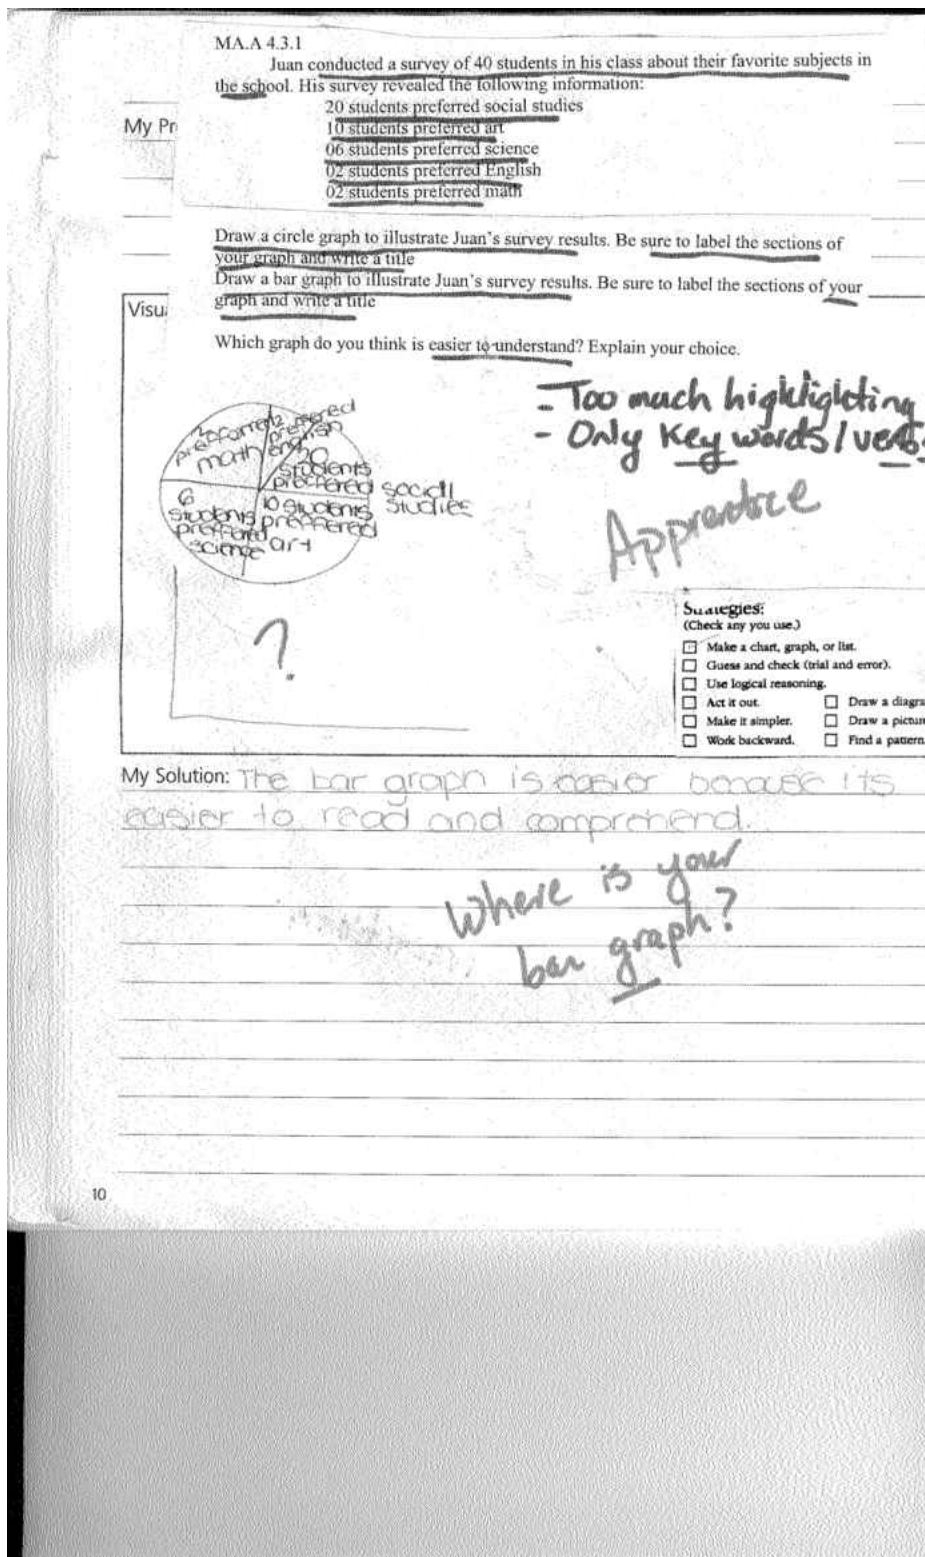 MA.A 4.3.1
Juan conducted a survey of 40 students in his class about their favorite subjects in
the school. His survey revealed the following information:
20 students preferred social studies
My Pr
10 students preferred art
06 students preferred science
02 students preferred English
02 students preferred math
Draw a circle graph to illustrate Juan's survey results. Be sure to label the sections of
your graph and write a title
Draw a bar graph to illustrate Juan's survey results. Be sure to label the sections of your
graph and write a title
Visu
Which graph do you think is easier to understand? Explain your choice.
- Too much highlighting
- Only Key words/verbs
2 preffered
math
2 preffered
english
20
students
preffered social
studies
6
students
preffered
science
10 students
preffered
art
Apprentice
?
Strategies:
(Check any you use.)
Make a chart, graph, or list.
Guess and check (trial and error).
Use logical reasoning.
Act it out. Draw a diagra
Make it simpler. Draw a picture
Work backward. Find a pattern
My Solution: The bar graph is easier because its
easier to read and comprehend.
Where is your
bar graph?
10